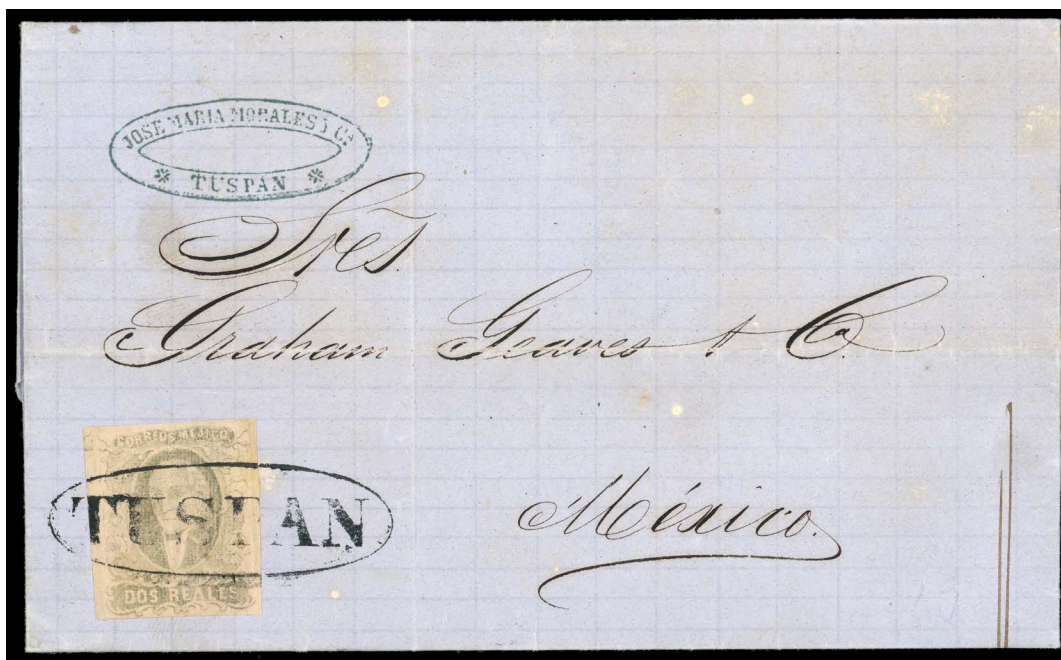 JOSE MARIA MORALES Y Cª
* TUSPAN *
Sres.
Graham Geaves & Cª
CORREOS MEJICO
TUSPAN
DOS REALES
México.